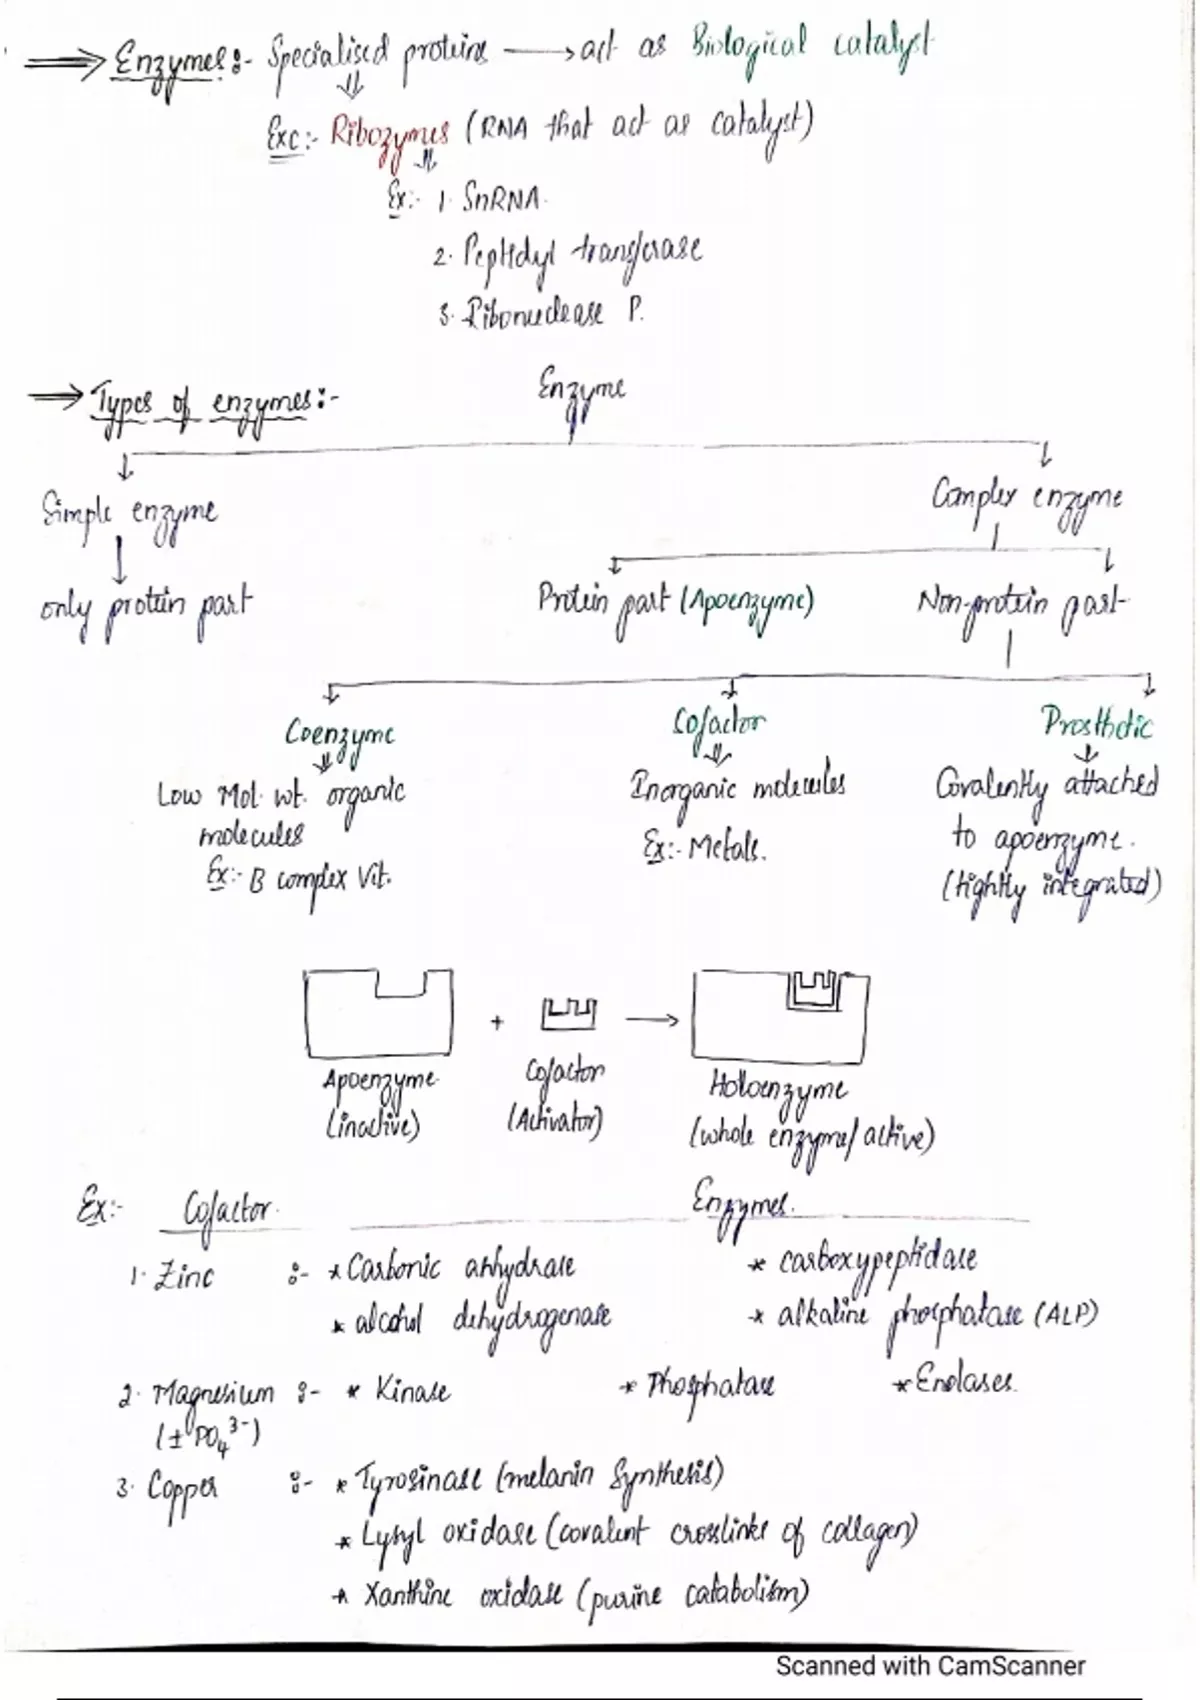 ⟹ Enzymes :- Specialised proteins ⟶ act as Biological catalyst
⇓
Exc :- Ribozymes (RNA that act as catalyst)
⇓
Ex :- 1. SnRNA.
2. Peptidyl transferase
3. Ribonuclease P.
⟹ Types of enzymes :- Enzyme
Simple enzyme Complex enzyme
only protein part Protein part (Apoenzyme) Non-protein part
Coenzyme Cofactor Prosthetic
Low Mol. wt. organic Inorganic molecules Covalently attached
molecules Ex :- Metals. to apoenzyme.
Ex :- B complex Vit. (tightly integrated)
+ →
Apoenzyme Cofactor Holoenzyme
(inactive) (Activator) (whole enzyme/active)
Ex :- Cofactor. Enzymes.
1. Zinc :- * Carbonic anhydrase * carboxypeptidase
* alcohol dehydrogenase * alkaline phosphatase (ALP)
2. Magnesium :- * Kinase * Phosphatase * Enolases.
(± PO₄³⁻)
3. Copper :- * Tyrosinase (melanin Synthesis)
* Lysyl oxidase (covalent crosslinks of collagen)
* Xanthine oxidase (purine catabolism)
Scanned with CamScanner